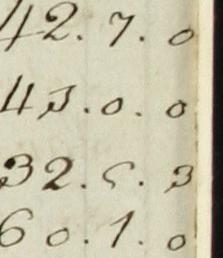 42. 7. 0
43. 0. 0
32. 5. 3
60. 1. 0